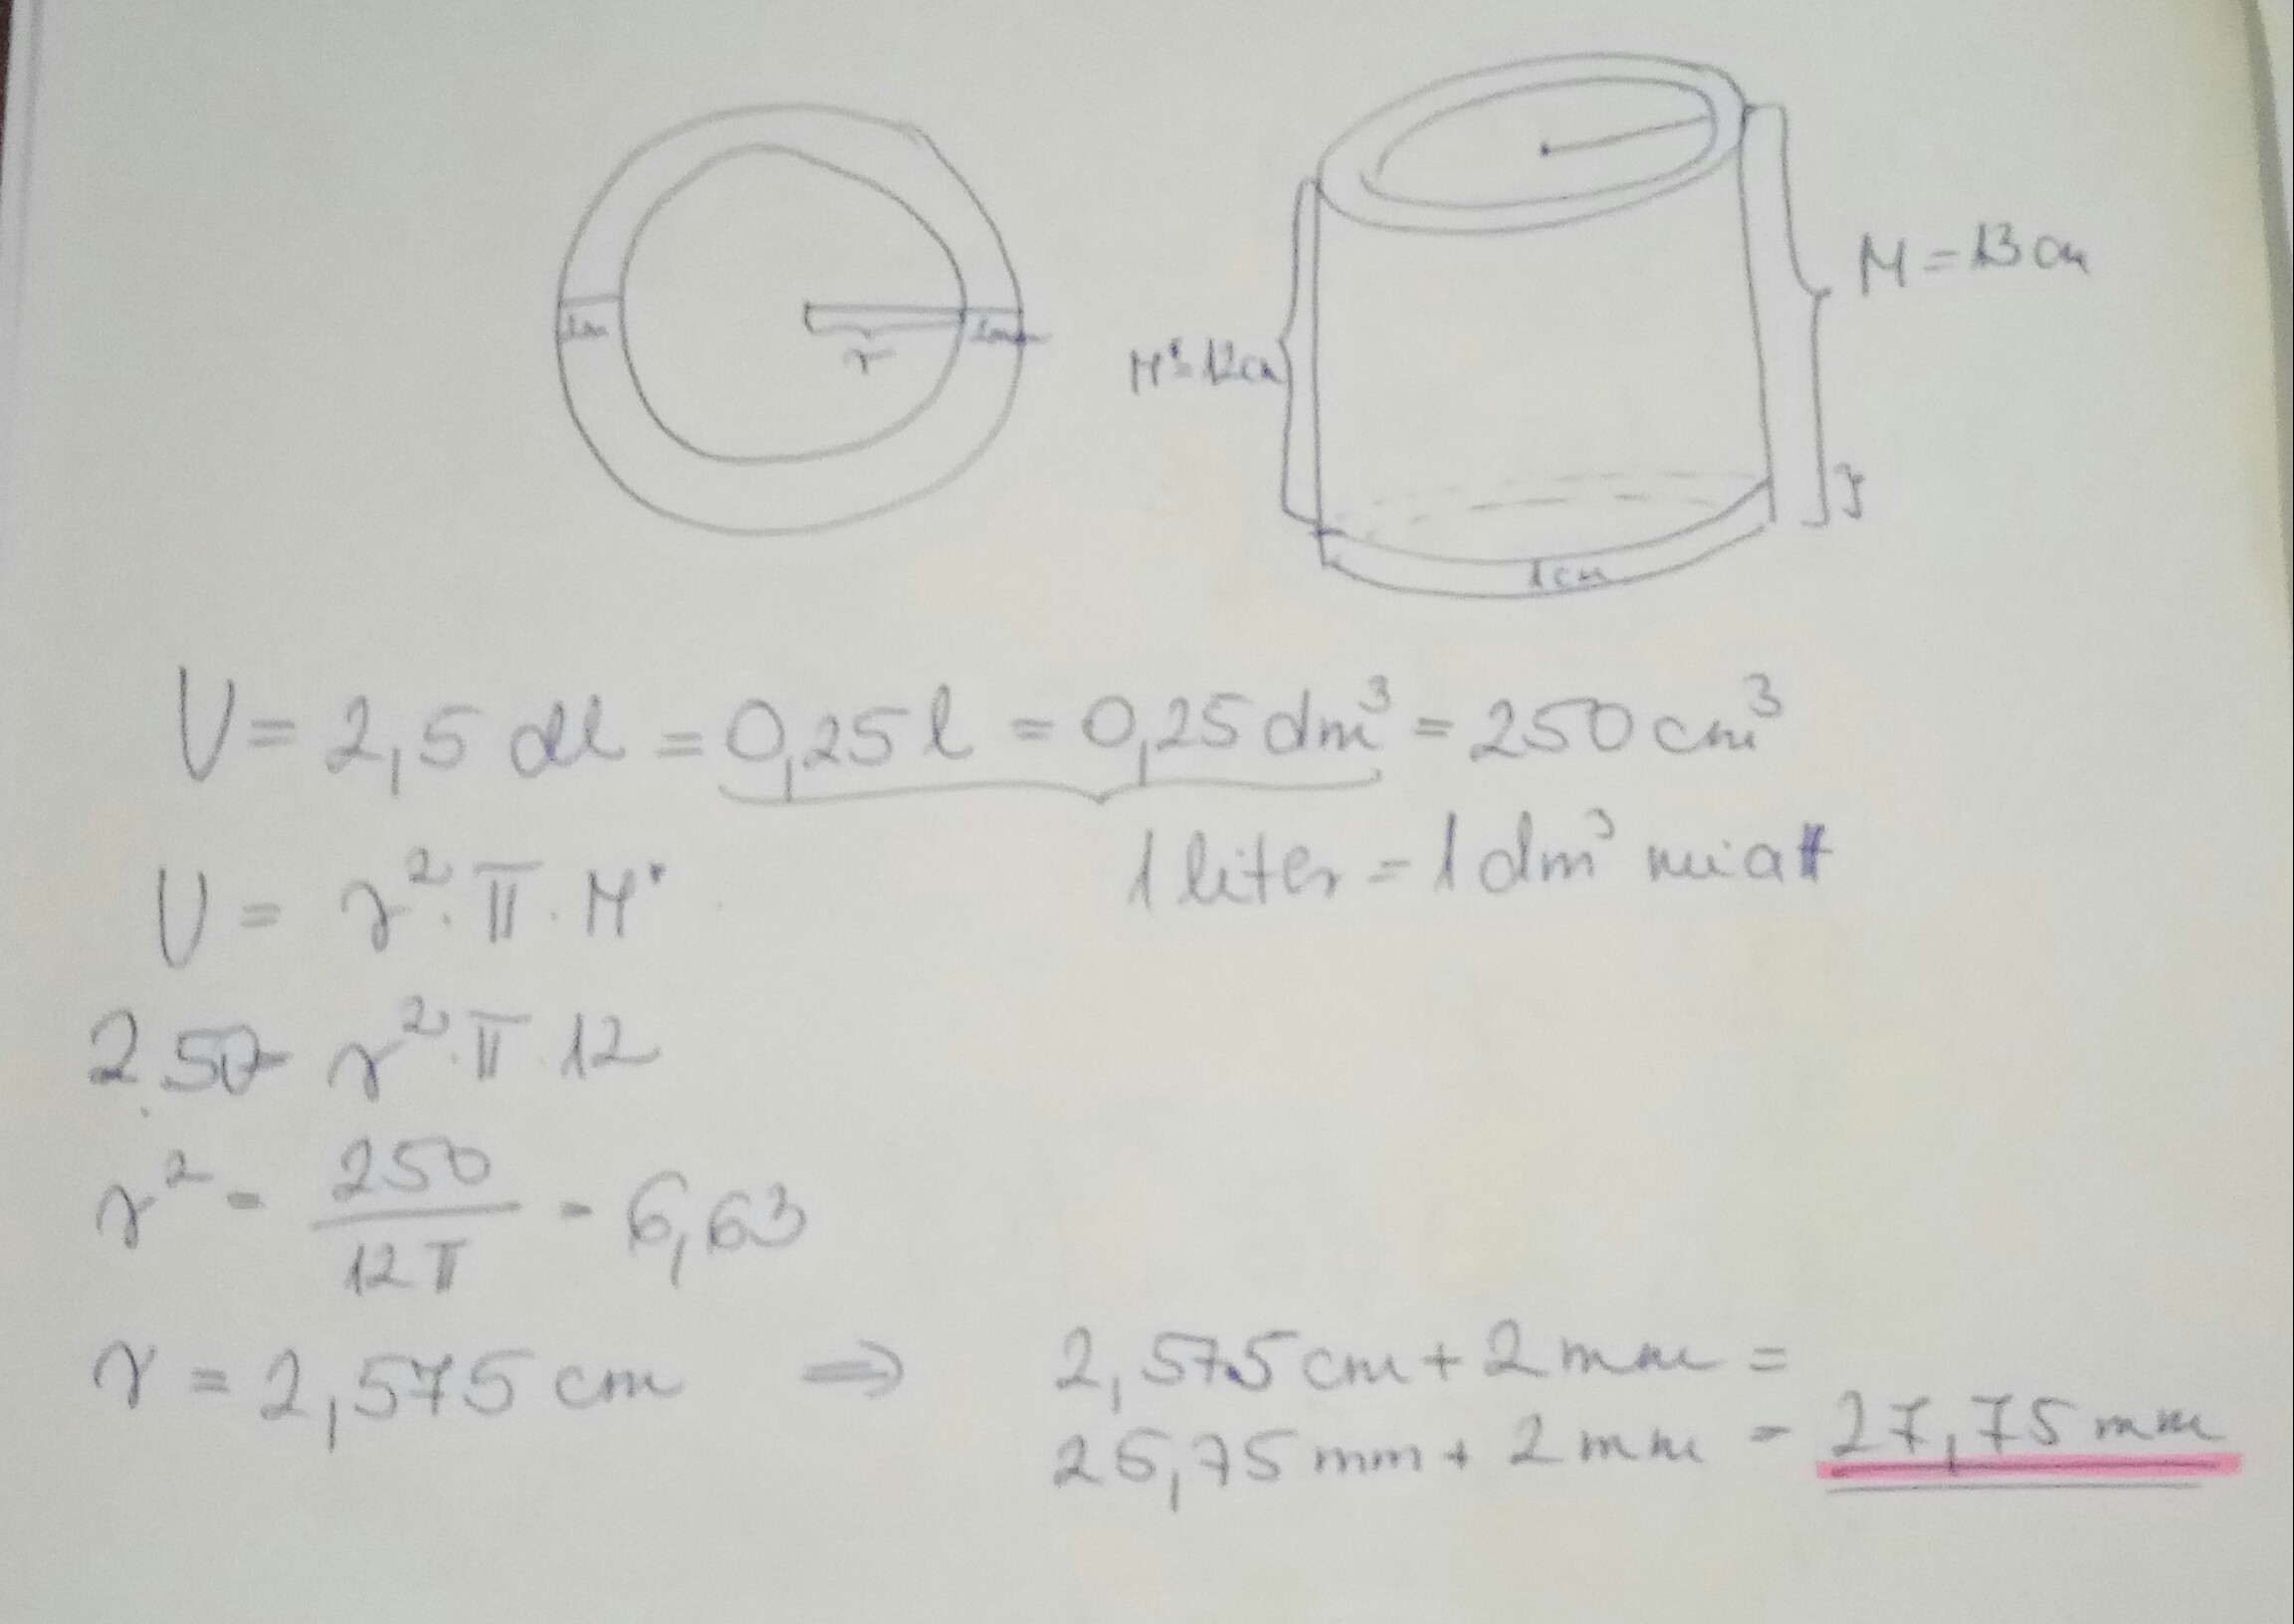 M = 13 cm
M* = 12 cm
r
1 cm
V = 2,5 dl = 0,25 l = 0,25 dm³ = 250 cm³
1 liter = 1 dm³ miatt
V = r² · π · M*
250 = r² · π · 12
r² = 250 / 12 π = 6,63
r = 2,575 cm ⇒ 2,575 cm + 2 mm =
25,75 mm + 2 mm = 27,75 mm